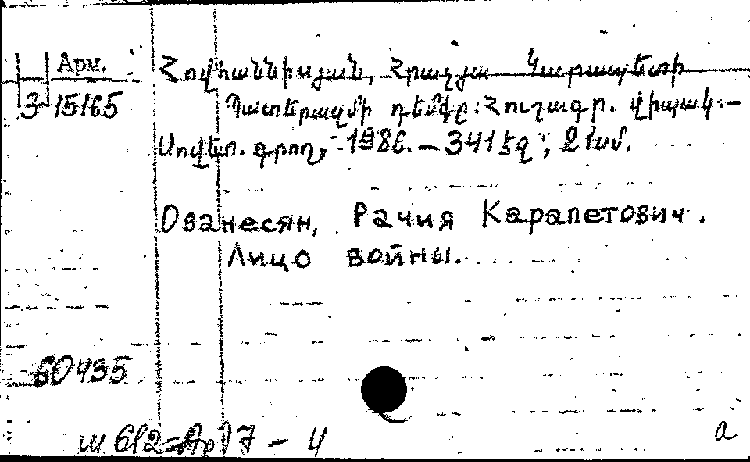 Арм.
3-15165
Հովհաննիսյան, Հրաչյա Կարապետի
Պատերազմի դեմքը: Հուշագր. վիպակ.—
Սովետ. գրող, 1986.— 341 էջ, 21 սմ.
Ованесян, Рачия Карапетович.
Лицо войны.
60435
а